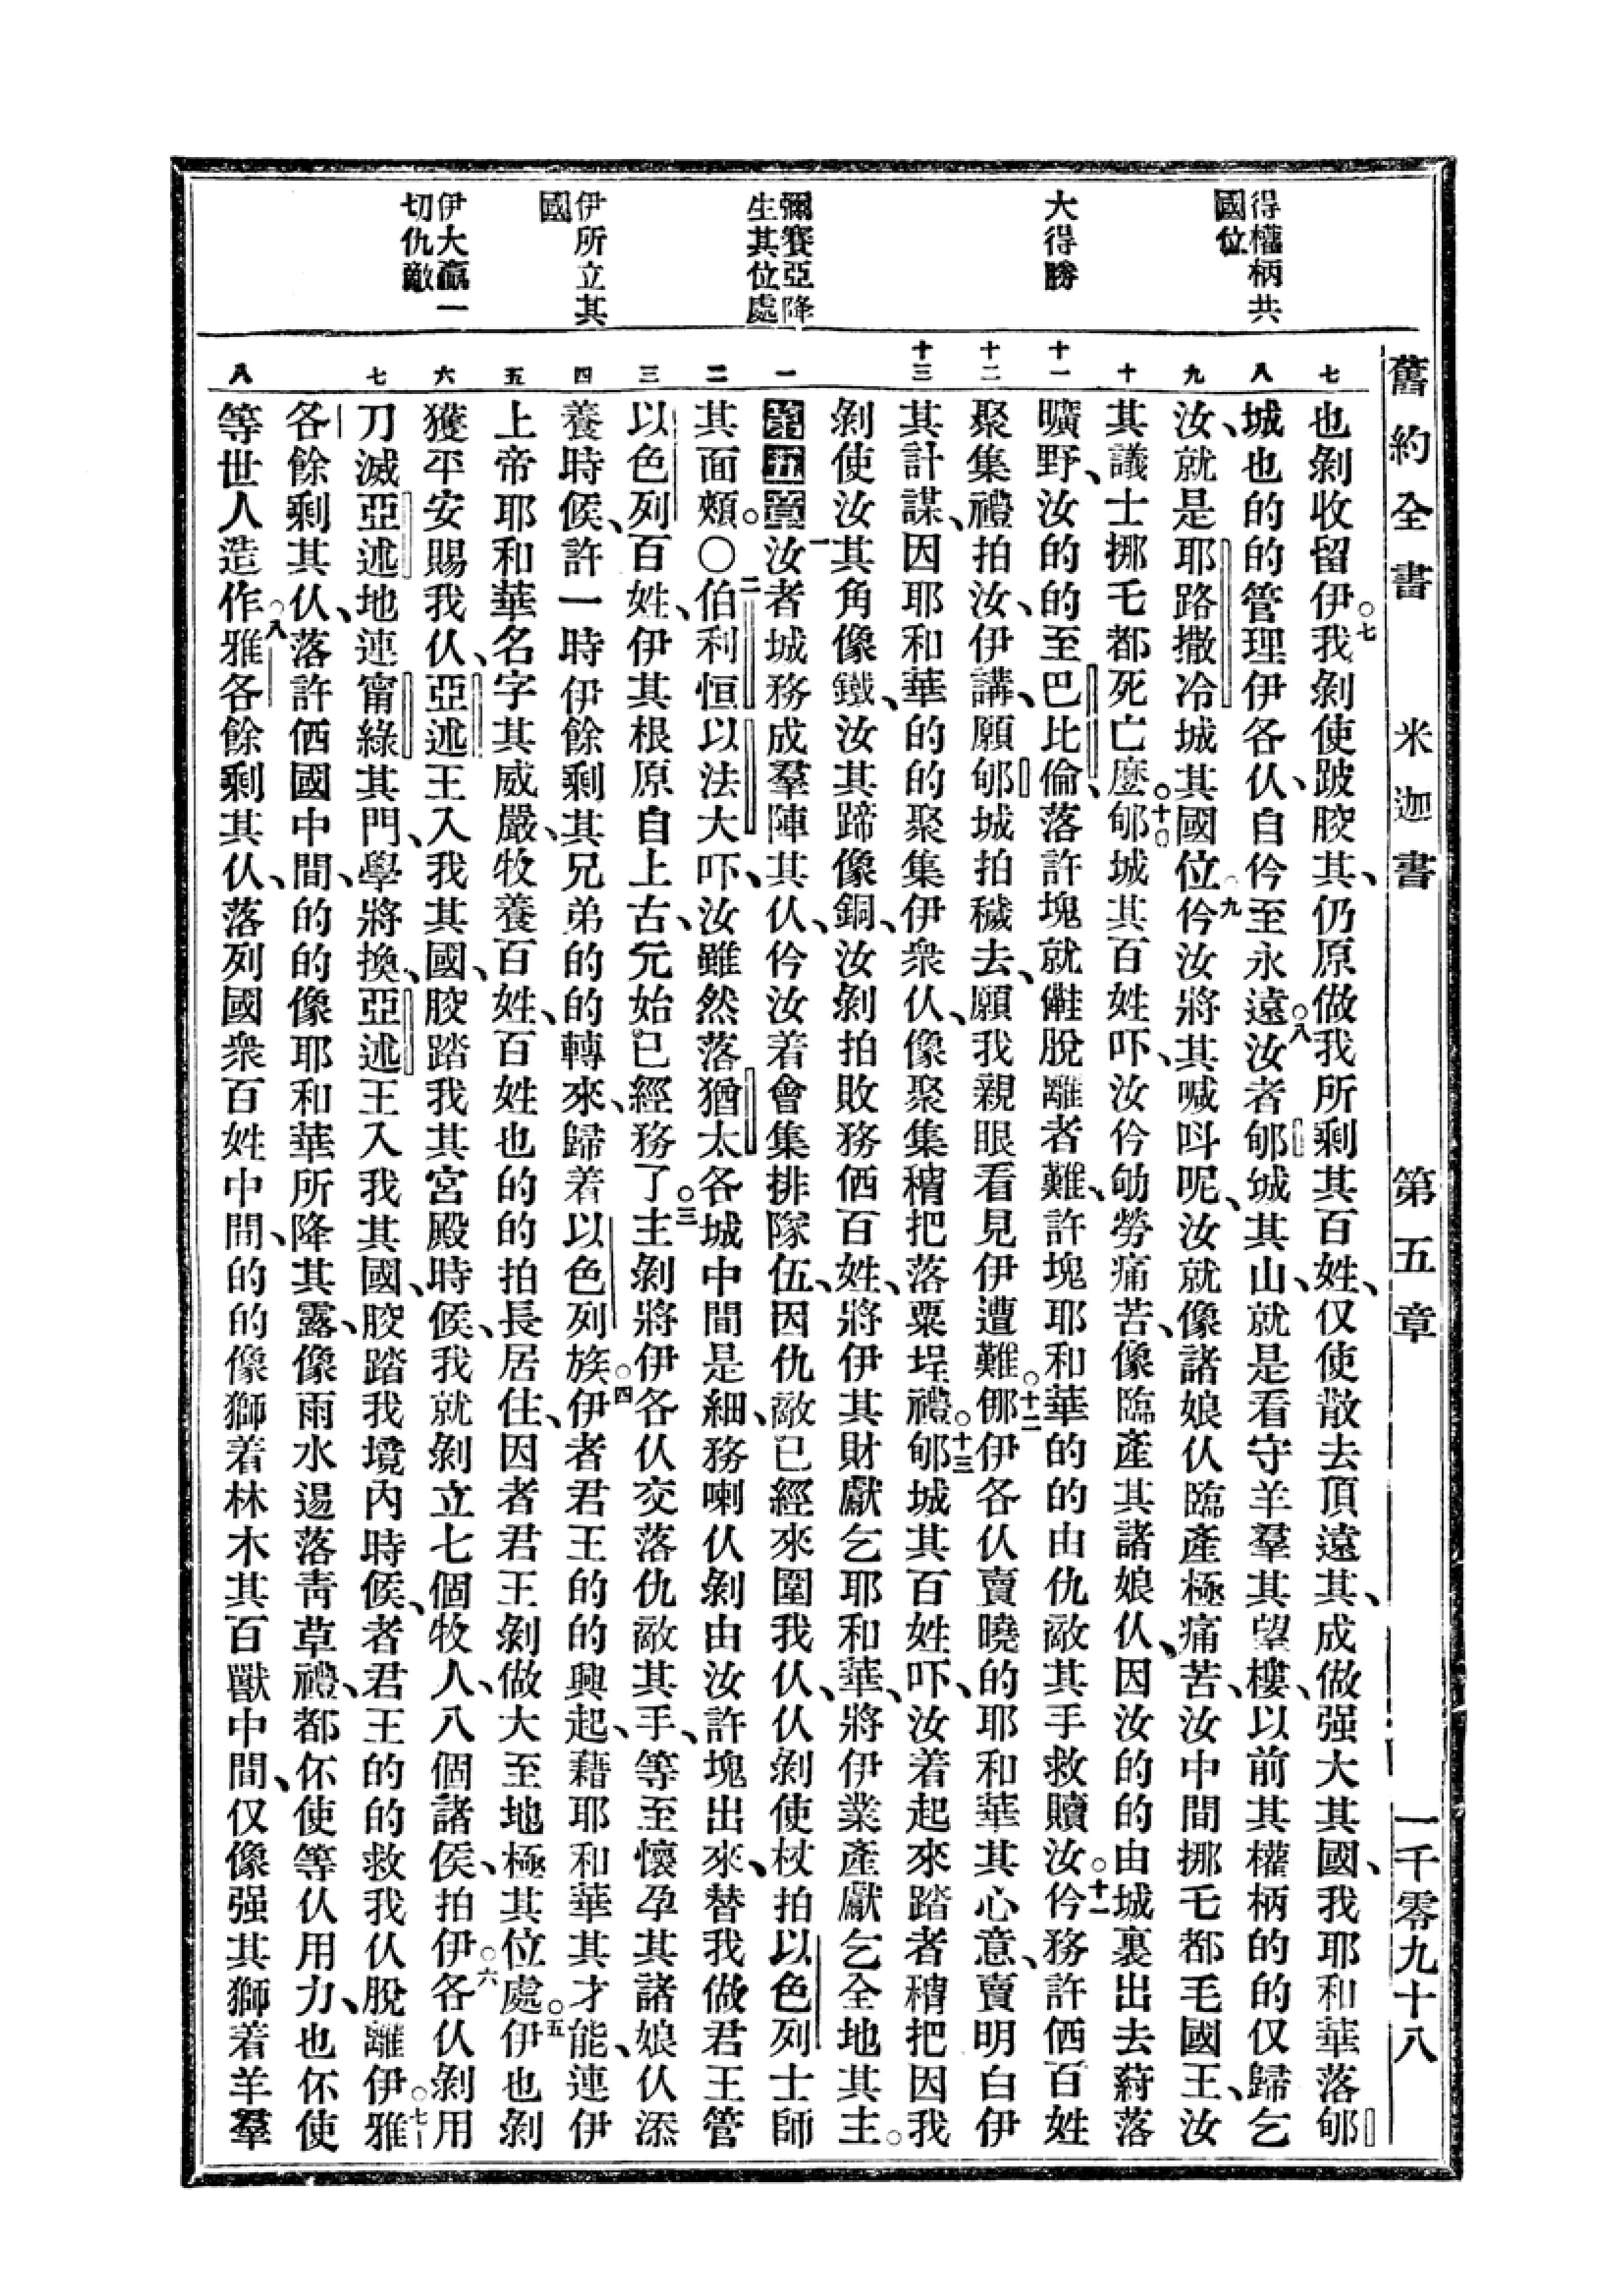 舊約全書　米迦書　第五章　一千零九十八
得權柄共
國位
大得勝
彌賽亞降
生其位處
伊所立其
國
伊大贏一
切仇敵
七 八 九 十 十一 十二 十三 一 二 三 四 五 六 七 八
也剝收留伊○七我剝使跛腔其、仍原做我所剩其百姓、仅使散去頂遠其、成做强大其國、我耶和華落郇
城也的的管理伊各仈、自仱至永遠○八汝者郇城其山、就是看守羊羣其望樓、以前其權柄的的仅歸乞
汝、就是耶路撒冷城其國位○九仱汝將其喊呌呢、汝就像諸娘仈臨產極痛苦、汝中間挪乇都毛國王、汝
其議士挪乇都死亡麽○十○郇城其百姓吓、汝仱劬勞痛苦、像臨產其諸娘仈、因汝的的由城裏出去葤落
曠野、汝的的至巴比倫、落許塊就㒚脫離者難、許塊耶和華的的由仇敵其手救贖汝○十一仱務許価百姓
聚集禮拍汝、伊講、願郇城拍穢去、願我親眼看見伊遭難○十二㑚伊各仈賣曉的耶和華其心意、賣明白伊
其計謀、因耶和華的的聚集伊衆仈、像聚集稍把落粟埕禮○十三郇城其百姓吓、汝着起來踏者稍把因我
剝使汝其角像鐵、汝其蹄像銅、汝剝拍敗務価百姓、將伊其財獻乞耶和華、將伊業產獻乞全地其主○
第五章一汝者城務成羣陣其仈、仱汝着會集排隊伍、因仇敵已經來圍我仈、仈剝使杖拍以色列士師
其面頰○〇二伯利恒以法大吓、汝雖然落猶太各城中間是細、務喇仈剝由汝許塊出來、替我做君王管
以色列百姓、伊其根原自上古、元始已經務了○三主剝將伊各仈交落仇敵其手、等至懷孕其諸娘仈添
養時候、許一時伊餘剩其兄弟的的轉來、歸着以色列族○四伊者君王的的興起、藉耶和華其才能、連伊
上帝耶和華名字其威嚴、牧養百姓、百姓也的的拍長居住、因者君王剝做大至地極其位處○五伊也剝
獲平安賜我仈、亞述王入我其國、腔踏我其宮殿時候、我就剝立七個牧人、八個諸侯、拍伊○六各仈剝用
刀滅亞述地連甯綠其門、學將換、亞述王入我其國、腔踏我境內時候、者君王的的救我仈脫離伊○七雅
各餘剩其仈、落許価國中間、的的像耶和華所降其露、像雨水逿落靑草禮、都伓使等仈用力、也伓使
等世人造作○八雅各餘剩其仈、落列國衆百姓中間、的的像獅着林木其百獸中間、仅像强其獅着羊羣